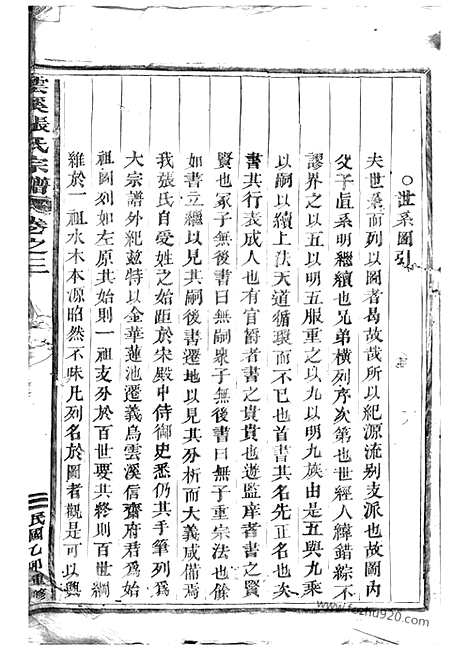 ○世系圖引
夫世系而列以圖者曷故哉所以紀源流别支派也故圖內
父子直系明繼續也兄弟橫列序次第也世經人緯錯綜不
謬界之以五以明五服重之以九以明九族由是五與九乘
以嗣以續上法天道循環而不已也首書其名先正名也次
書其行表成人也有官爵者書之貴貴也遊監庠者書之賢
賢也家子無後書曰無嗣衆子無後書曰無子重宗法也餘
如書立繼以見其嗣後書遷地以見其分析而大義咸備焉
我張氏自受姓之始距於宋殿中侍御史悉仍其手筆列爲
大宗譜外紀兹特以金華蓮池遷義烏雲溪信齋府君爲始
祖圖列如左原其始則一祖支分於百世要其終則百世綢
維於一祖水木本源昭然不昧凡列名於圖者觀是可以興
雲溪張氏宗譜
卷之三
民國乙卯重修
www.fozhu920.com